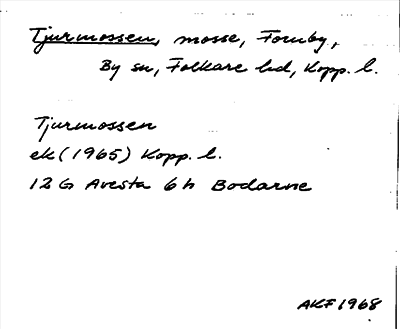 Tjurmossen, mosse, Fornby,
By sn, Folkare hd, Kopp. l.
Tjurmossen
ek (1965) Kopp. l.
12 G Avesta 6 h Bodarne
AKF 1968